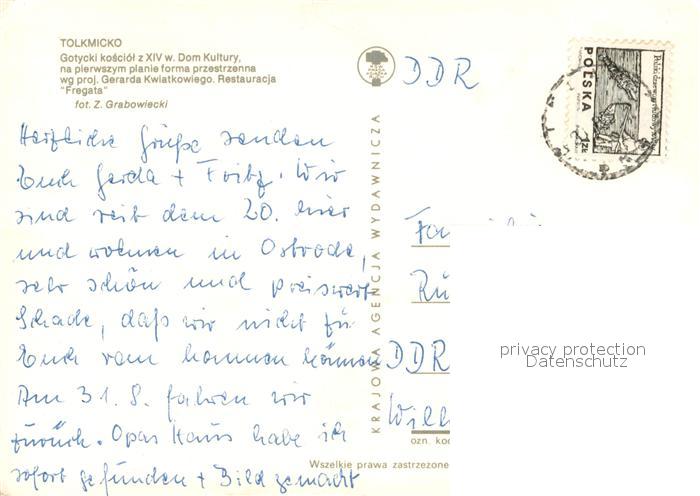 TOLKMICKO
Gotycki kościół z XIV w. Dom Kultury,
na pierwszym planie forma przestrzenna
wg proj. Gerarda Kwiatkowiego. Restauracja
"Fregata"
fot. Z. Grabowiecki
Herzliche Grüße senden
Euch Gerda + Fritz. Wir
sind seit dem 20. hier
und wohnen in Ostroda,
sehr schön und preiswert
Schade, daß wir nicht zu
Euch ram kommen können
Am 31.8. fahren wir
zurück. Opas Haus habe ich
sofort gefunden + Bild gemacht
KRAJOWA AGENCJA WYDAWNICZA
DDR
POLSKA
1 ZŁ
Fa
Rü
DDR
Will
ozn. kod
Wszelkie prawa zastrzeżone
privacy protection
Datenschutz